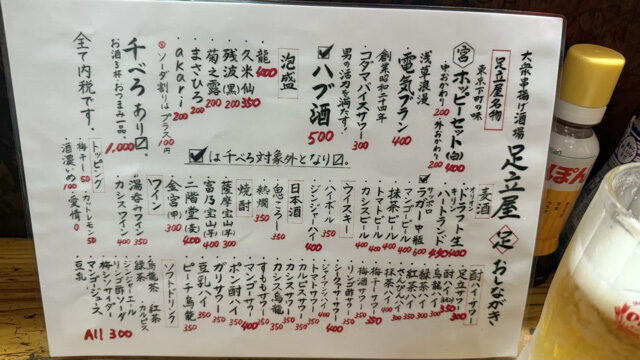 大衆串揚げ酒場 足立屋 足 おしながき
足立屋名物
東京下町の味
宮 ホッピーセット(白) 400
中おかわり 200 外おかわり 200
浅草浪漫
電気ブラン 400
創業昭和二十四年
コダマバイスサワー 300
男の活力を満たす!
ハブ酒 500
泡盛
龍 400
久米仙 350
残波(黒) 200
菊之露 200
まさひろ 200
akari 200
ソーダ割りはプラス100円
千べろあり
お酒3杯、おつまみ一品。 1,000
全て内税です。
は千べろ対象外となり
麦酒
オリオン ドラフト生 400
キリン ハートランド 450
サッポロ ラガー中瓶 500
マンゴービール 400
抹茶ビール 400
トマトビール 400
カシスビール 400
ウイスキー
ハイボール 350
ジンジャーハイ 400
日本酒
鬼ころし 300
熱燗 350
焼酎
薩摩宝山(芋) 400
富乃宝山(芋) 400
二階堂(麦) 400
金宮(甲) 300
ワイン
湯呑ワイン 350
カシスワイン 400
トッピング
カットレモン 50
梅干し 50
愛情 0
酒濃いめ 100
酎ハイ・サワー
足立サワー
酎ハイ
烏龍ハイ
緑茶ハイ
紅茶ハイ
さんぴんハイ
抹茶ハイ
梅干サワー
梅酒サワー 350
リンゴ酢サワー
シークワーサー
ジンジャーハイ
トマトサワー
カルピスサワー
カシスサワー 350
カシス烏龍 350
すももサワー
マンゴーサワー 400
ポン酢ハイ
ガリサワー
豆乳ハイ 350
ピーチ烏龍 350
ソフトドリンク
烏龍茶 紅茶
緑茶 カルピス
ジンジャーエール
リンゴ酢ソーダ
梅シソサイダー
マンゴージュース
豆乳
All 300